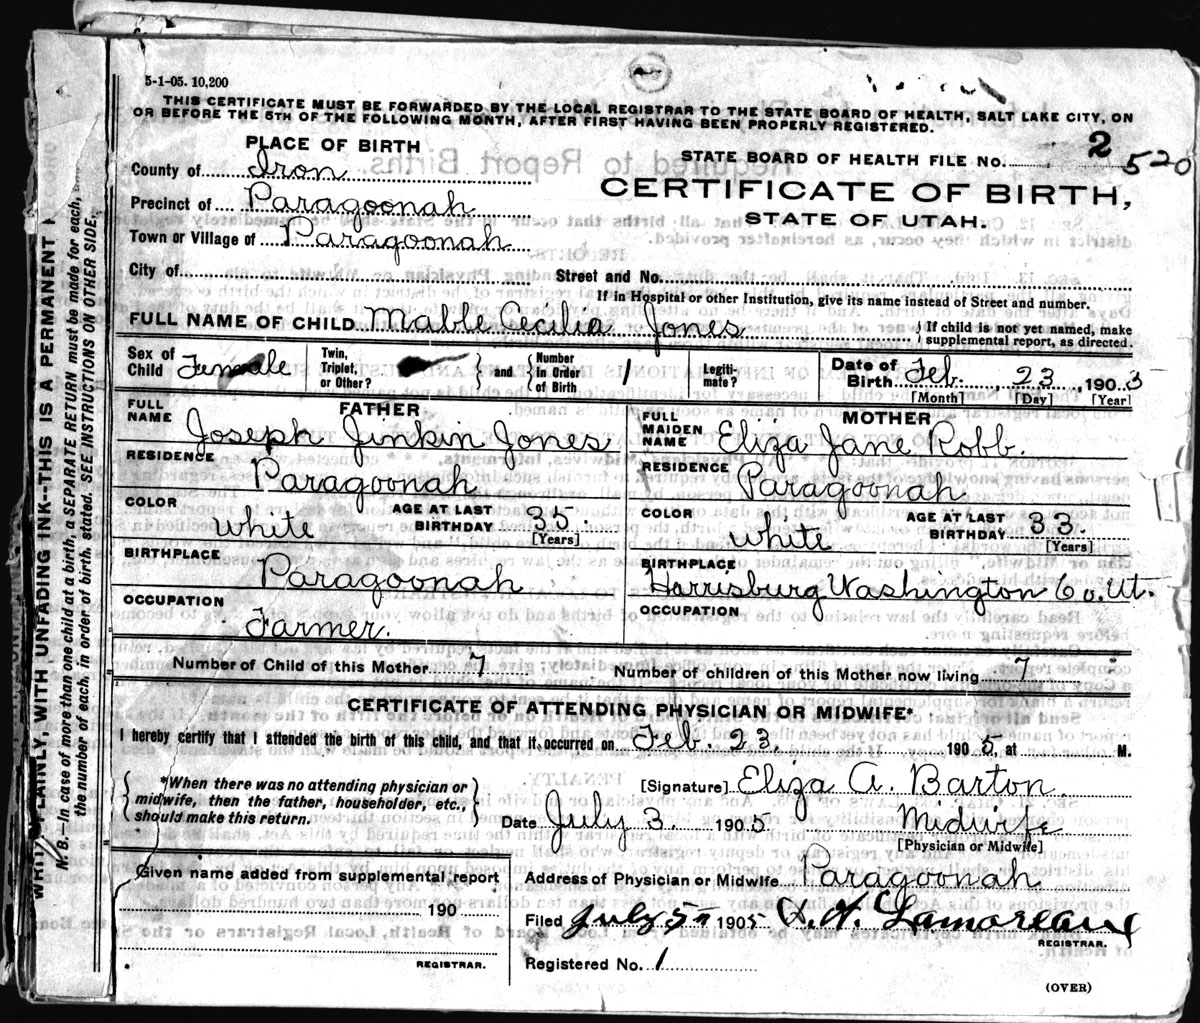 5-1-05. 10,200
THIS CERTIFICATE MUST BE FORWARDED BY THE LOCAL REGISTRAR TO THE STATE BOARD OF HEALTH, SALT LAKE CITY, ON
OR BEFORE THE 5TH OF THE FOLLOWING MONTH, AFTER FIRST HAVING BEEN PROPERLY REGISTERED.
PLACE OF BIRTH
STATE BOARD OF HEALTH FILE NO. 2 520
County of Iron
CERTIFICATE OF BIRTH,
Precinct of Paragoonah
STATE OF UTAH.
Town or Village of Paragoonah
City of Street and No.
If in Hospital or other Institution, give its name instead of Street and number.
FULL NAME OF CHILD Mable Cecilia Jones { If child is not yet named, make
supplemental report, as directed.
Sex of Child Female Twin, Triplet, or Other? } and { Number in Order of Birth 1 Legiti-mate? Date of Birth Feb. 23, 1905
[Month] [Day] [Year]
FATHER
FULL NAME Joseph Jinkin Jones
RESIDENCE Paragoonah
COLOR White AGE AT LAST BIRTHDAY 35.
[Years]
BIRTHPLACE Paragoonah
OCCUPATION Farmer.
MOTHER
FULL MAIDEN NAME Eliza Jane Robb.
RESIDENCE Paragoonah
COLOR White AGE AT LAST BIRTHDAY 33.
[Years]
BIRTHPLACE Harrisburg Washington Co. Ut.
OCCUPATION
Number of Child of this Mother 7 Number of children of this Mother now living 7
CERTIFICATE OF ATTENDING PHYSICIAN OR MIDWIFE*
I hereby certify that I attended the birth of this child, and that it occurred on Feb. 23. 1905, at M.
{ *When there was no attending physician or
midwife, then the father, householder, etc.,
should make this return. }
[Signature] Eliza A. Barton.
Date July 3. 1905. Midwife
[Physician or Midwife]
Given name added from supplemental report
190
REGISTRAR.
Address of Physician or Midwife Paragoonah
Filed July 5th 1905
REGISTRAR.
Registered No. 1
(OVER)
WRITE PLAINLY, WITH UNFADING INK--THIS IS A PERMANENT
N. B.—In case of more than one child at a birth, a SEPARATE RETURN must be made for each,
the number of each, in order of birth, stated. SEE INSTRUCTIONS ON OTHER SIDE.